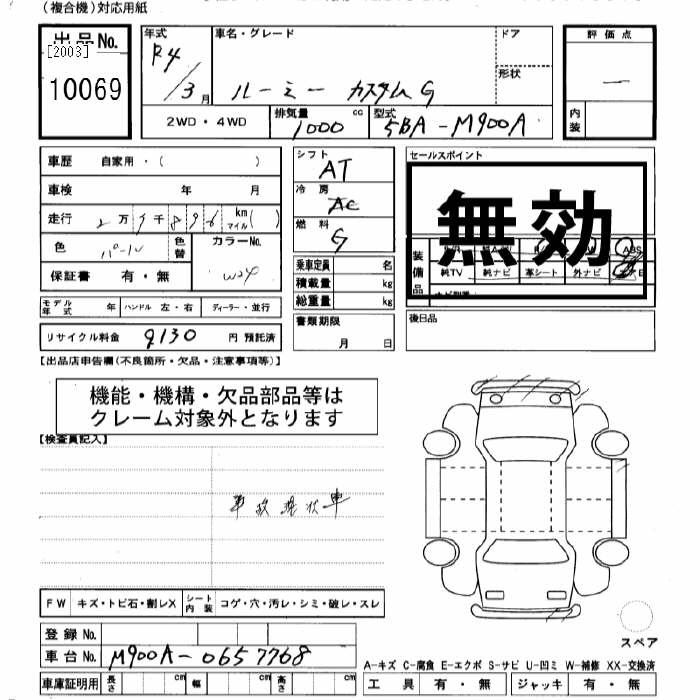 (複合機)対応用紙
出品No.
[2003]
10069
年式
R4/3月
車名・グレード
ルーミー カスタムG
ドア
形状
評価点
一
内装
2WD・4WD
排気量 1000 cc
型式 5BA-M900A
車歴 自家用・( )
車検 年 月
走行 2万 千 8 9 6 km マイル ( )
色 パール
色替
カラーNo. W24
保証書 有・無
モデル年式 年 ハンドル 左・右 ディーラー・並行
リサイクル料金 9130 円 預託済
シフト AT
冷房 AC
燃料 G
乗車定員 名
積載量 kg
総重量 kg
書類期限
月 日
セールスポイント
無効
装備品
ABS
純TV 純ナビ 革シート 外ナビ
後日品
【出品店申告欄(不良箇所・欠品・注意事項等)】
機能・機構・欠品部品等は
クレーム対象外となります
【検査員記入】
事故現状車
FW キズ・トビ石・割レX シート内装 コゲ・穴・汚レ・シミ・破レ・スレ
登録No.
車台No. M900A-0657768
車庫証明用 長さ cm 幅 cm 高さ cm
スペア
A-キズ C-腐食 E-エクボ S-サビ U-凹ミ W-補修 XX-交換済
工具 有・無 ジャッキ 有・無